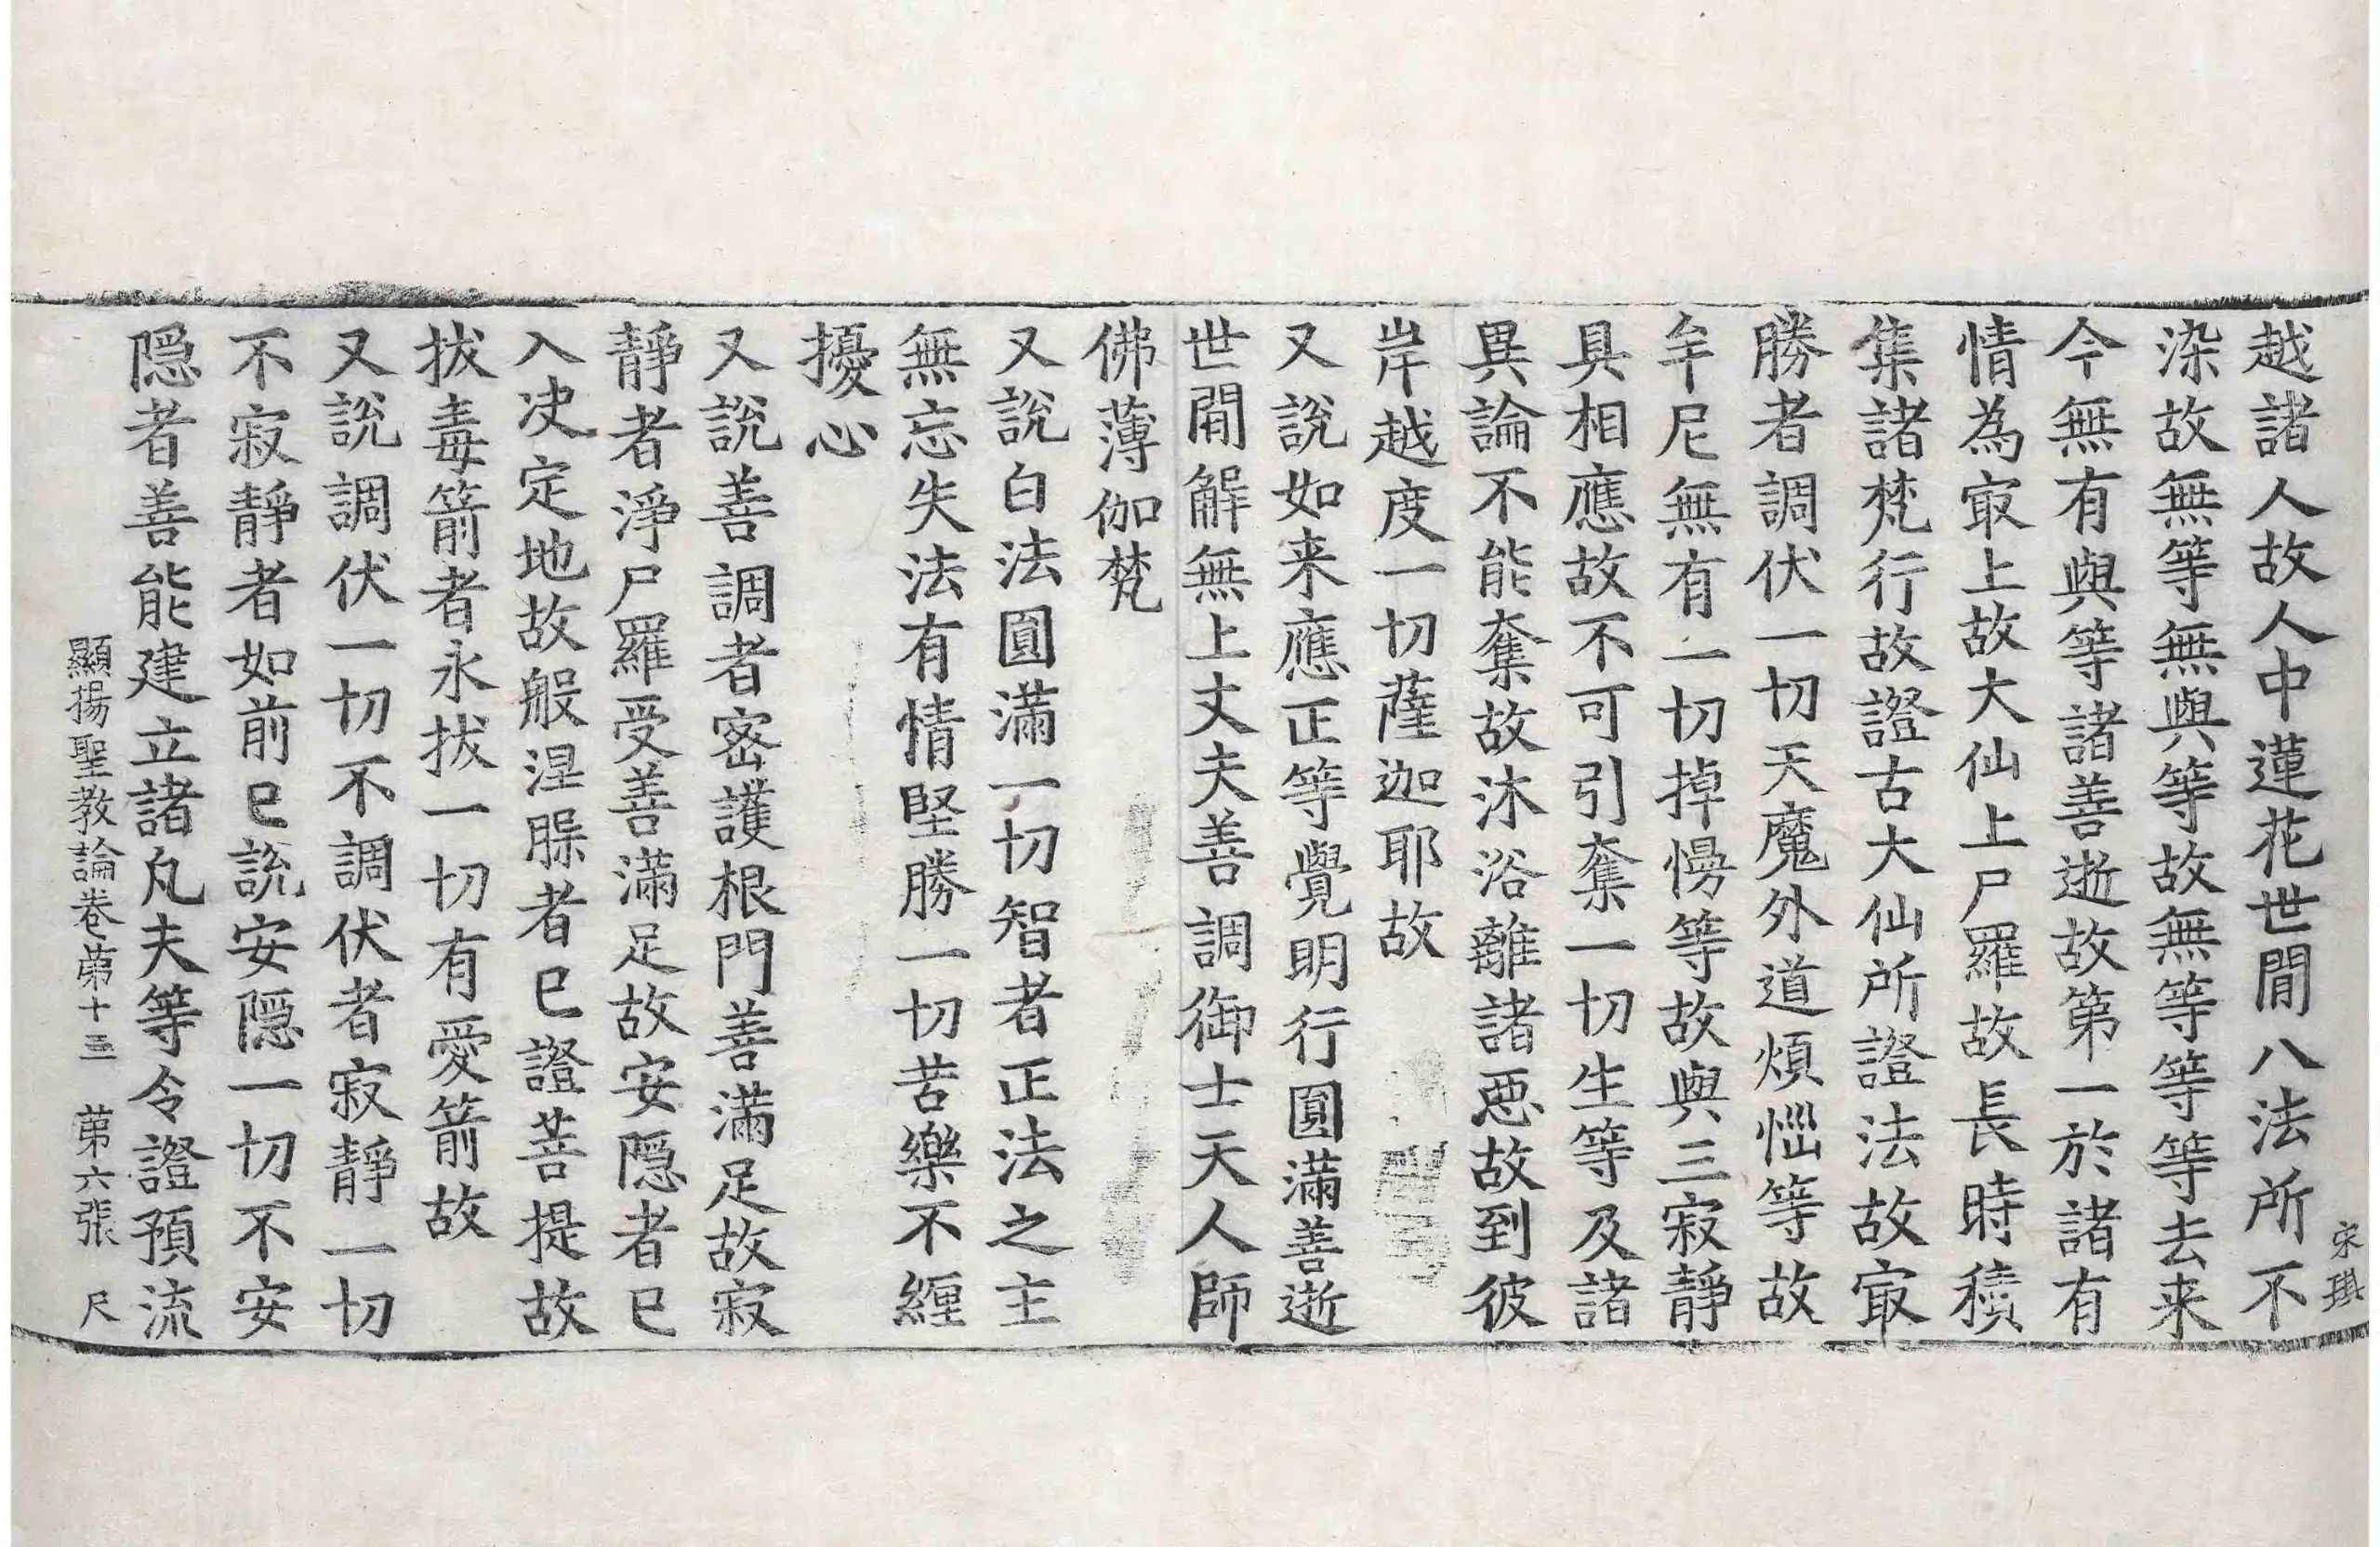 越諸人故人中蓮花世間八法所不
染故無等無與等故無等等等去来
今無有與等諸善逝故第一於諸有
情為㝡上故大仙上尸羅故長時積
集諸梵行故證古大仙所證法故㝡
勝者調伏一切天魔外道煩惱等故
牟尼無有一切掉慢等故與三寂靜
具相應故不可引奪一切生等及諸
異論不能奪故沐浴離諸惡故到彼
岸越度一切薩迦耶故
又說如来應正等覺明行圓滿善逝
世間解無上丈夫善調御士天人師
佛薄伽梵
又說白法圓滿一切智者正法之主
無忘失法有情堅勝一切苦樂不纏
擾心
又說善調者密護根門善滿足故寂
靜者淨尸羅受善滿足故安隱者已
入决定地故般涅槃者已證菩提故
拔毒箭者永拔一切有愛箭故
又說調伏一切不調伏者寂靜一切
不寂靜者如前已說安隱一切不安
隱者善能建立諸凡夫等令證預流
顯揚聖教論卷苐十三 苐六張 尺
宋琪